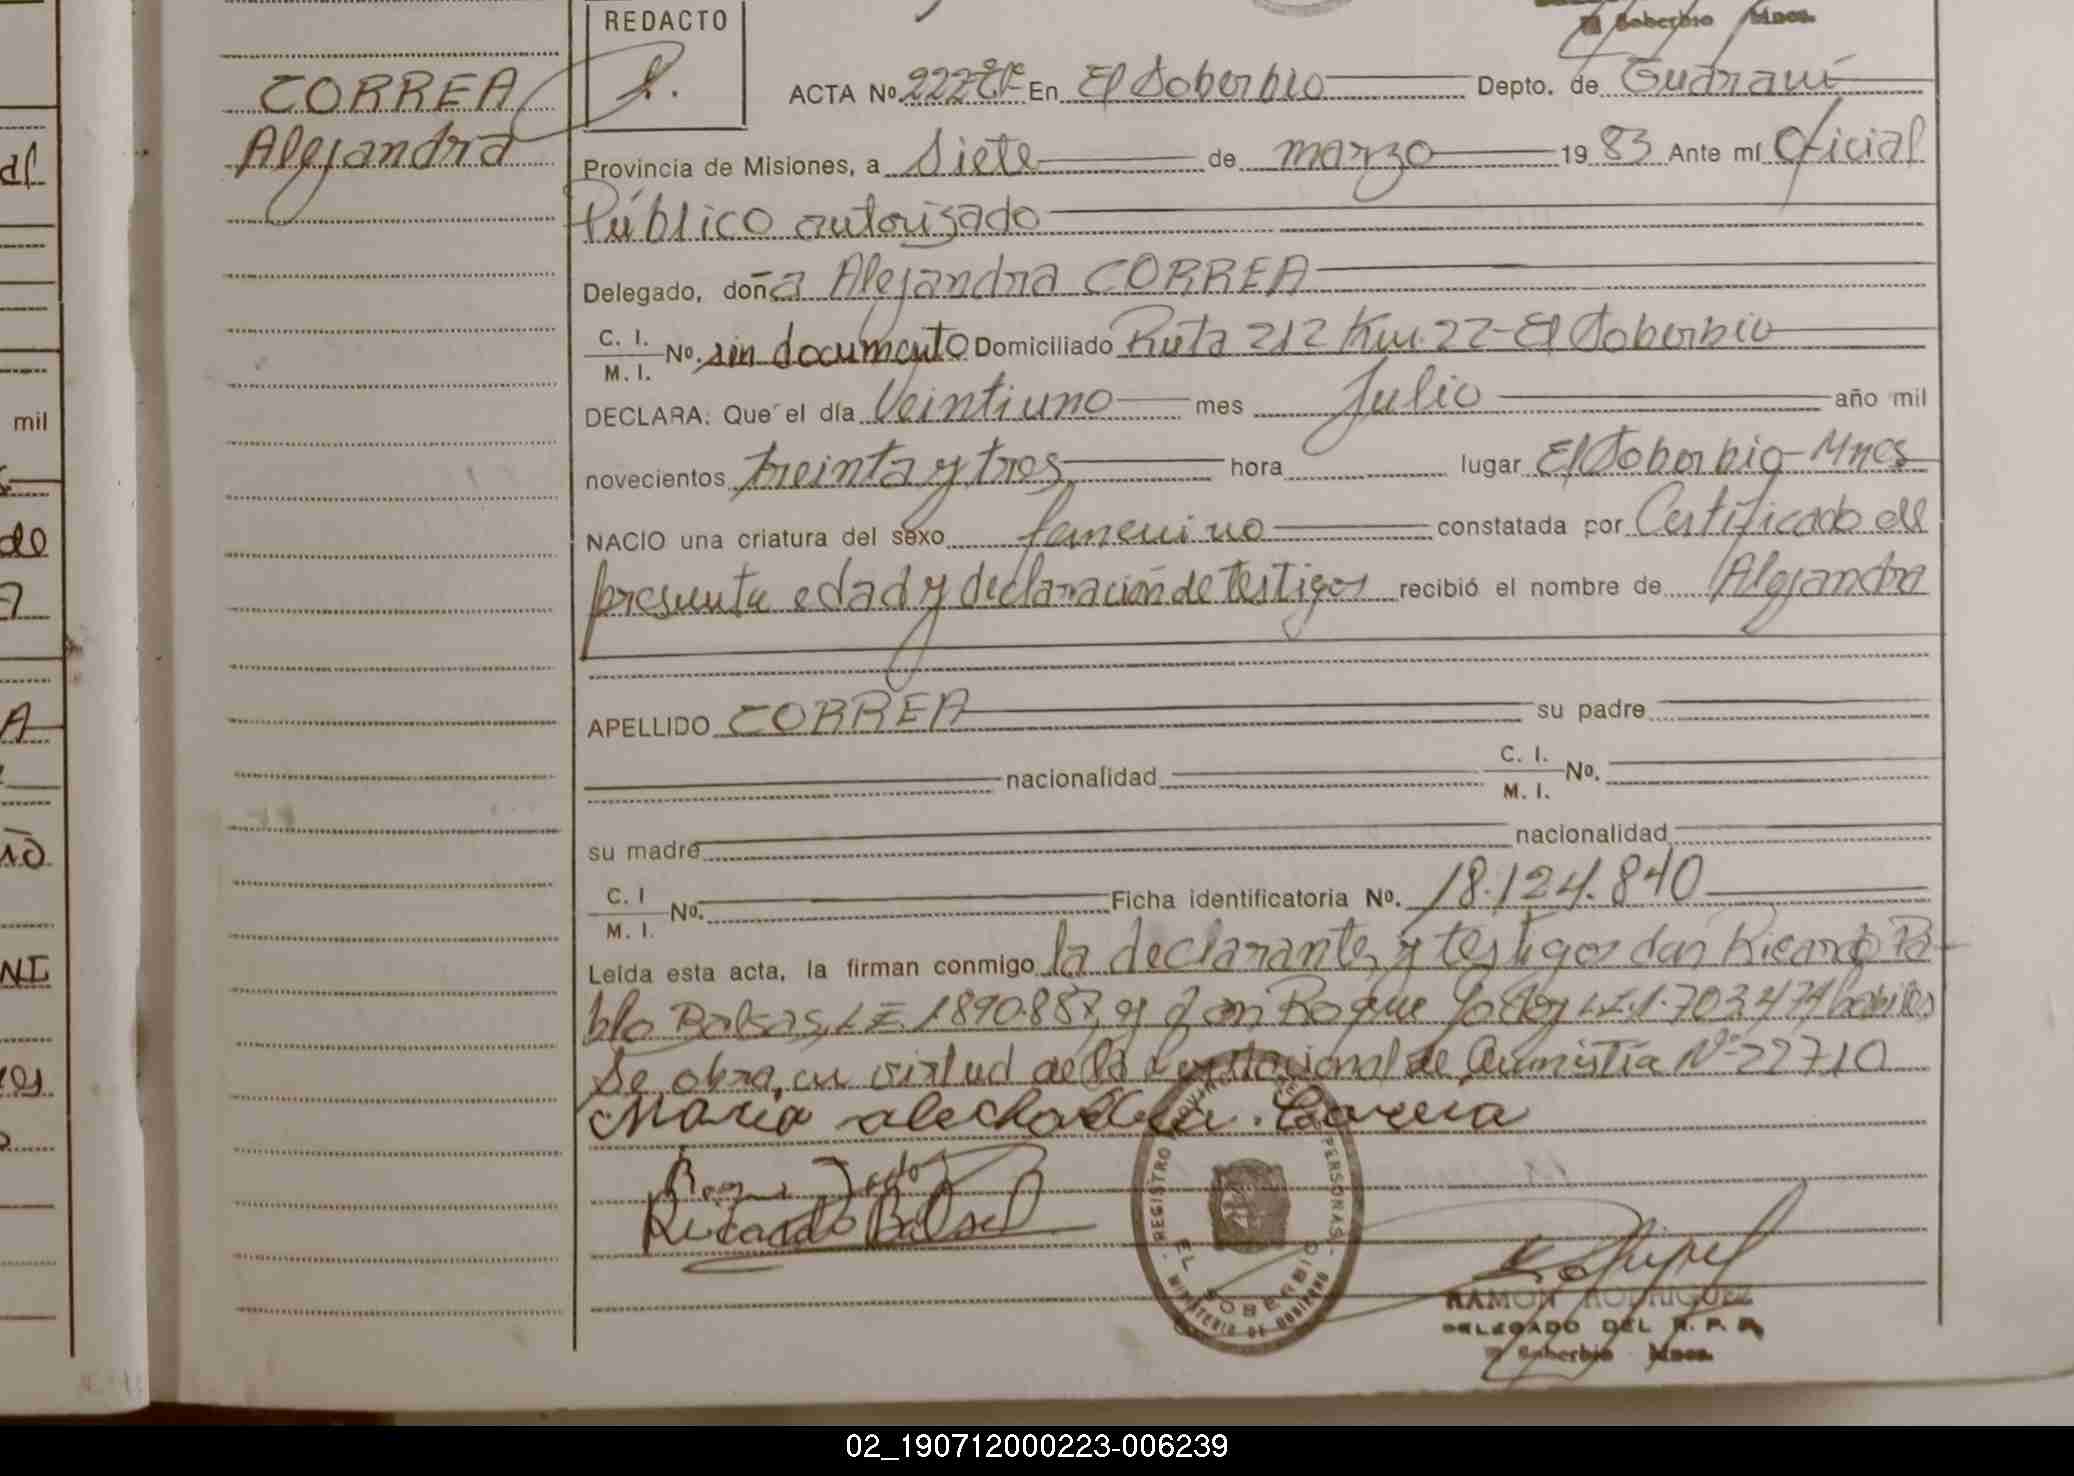 REDACTO
El Soberbio Mnes.
CORREA
Alejandra
ACTA Nº 222 En El Soberbio Depto. de Guaraní
Provincia de Misiones, a Siete de marzo 1983 Ante mí Oficial
Público autorizado
Delegado, doña Alejandra CORREA
C. I. M. I. Nº. sin documento Domiciliado Ruta 212 Km. 22-El Soberbio
DECLARA: Que el día Veintiuno mes Julio año mil
novecientos treinta y tres hora lugar El Soberbio-Mnes
NACIO una criatura del sexo femenino constatada por Certificado de
presunta edad y declaración de testigos recibió el nombre de Alejandra
APELLIDO CORREA su padre
nacionalidad C. I. M. I. Nº.
su madre nacionalidad
C. I M. I. Nº. Ficha identificatoria Nº. 18.124.840
Leída esta acta, la firman conmigo la declarante y testigos don Ricardo Pa-
blo Balsas, L.E. 1890.887, y don Roque Godoy L.E. 1.703.474 hábiles
Se obra, en virtud de la Ley Nacional de Amnistía Nº 22710
Maria
Ricardo
REGISTRO PERSONAS
EL SOBERBIO
MINISTERIO DE GOBIERNO
RAMON RODRIGUEZ
DELEGADO DEL R. P. P.
El Soberbio Mnes.
mil
al
de
A
NI
02_190712000223-006239